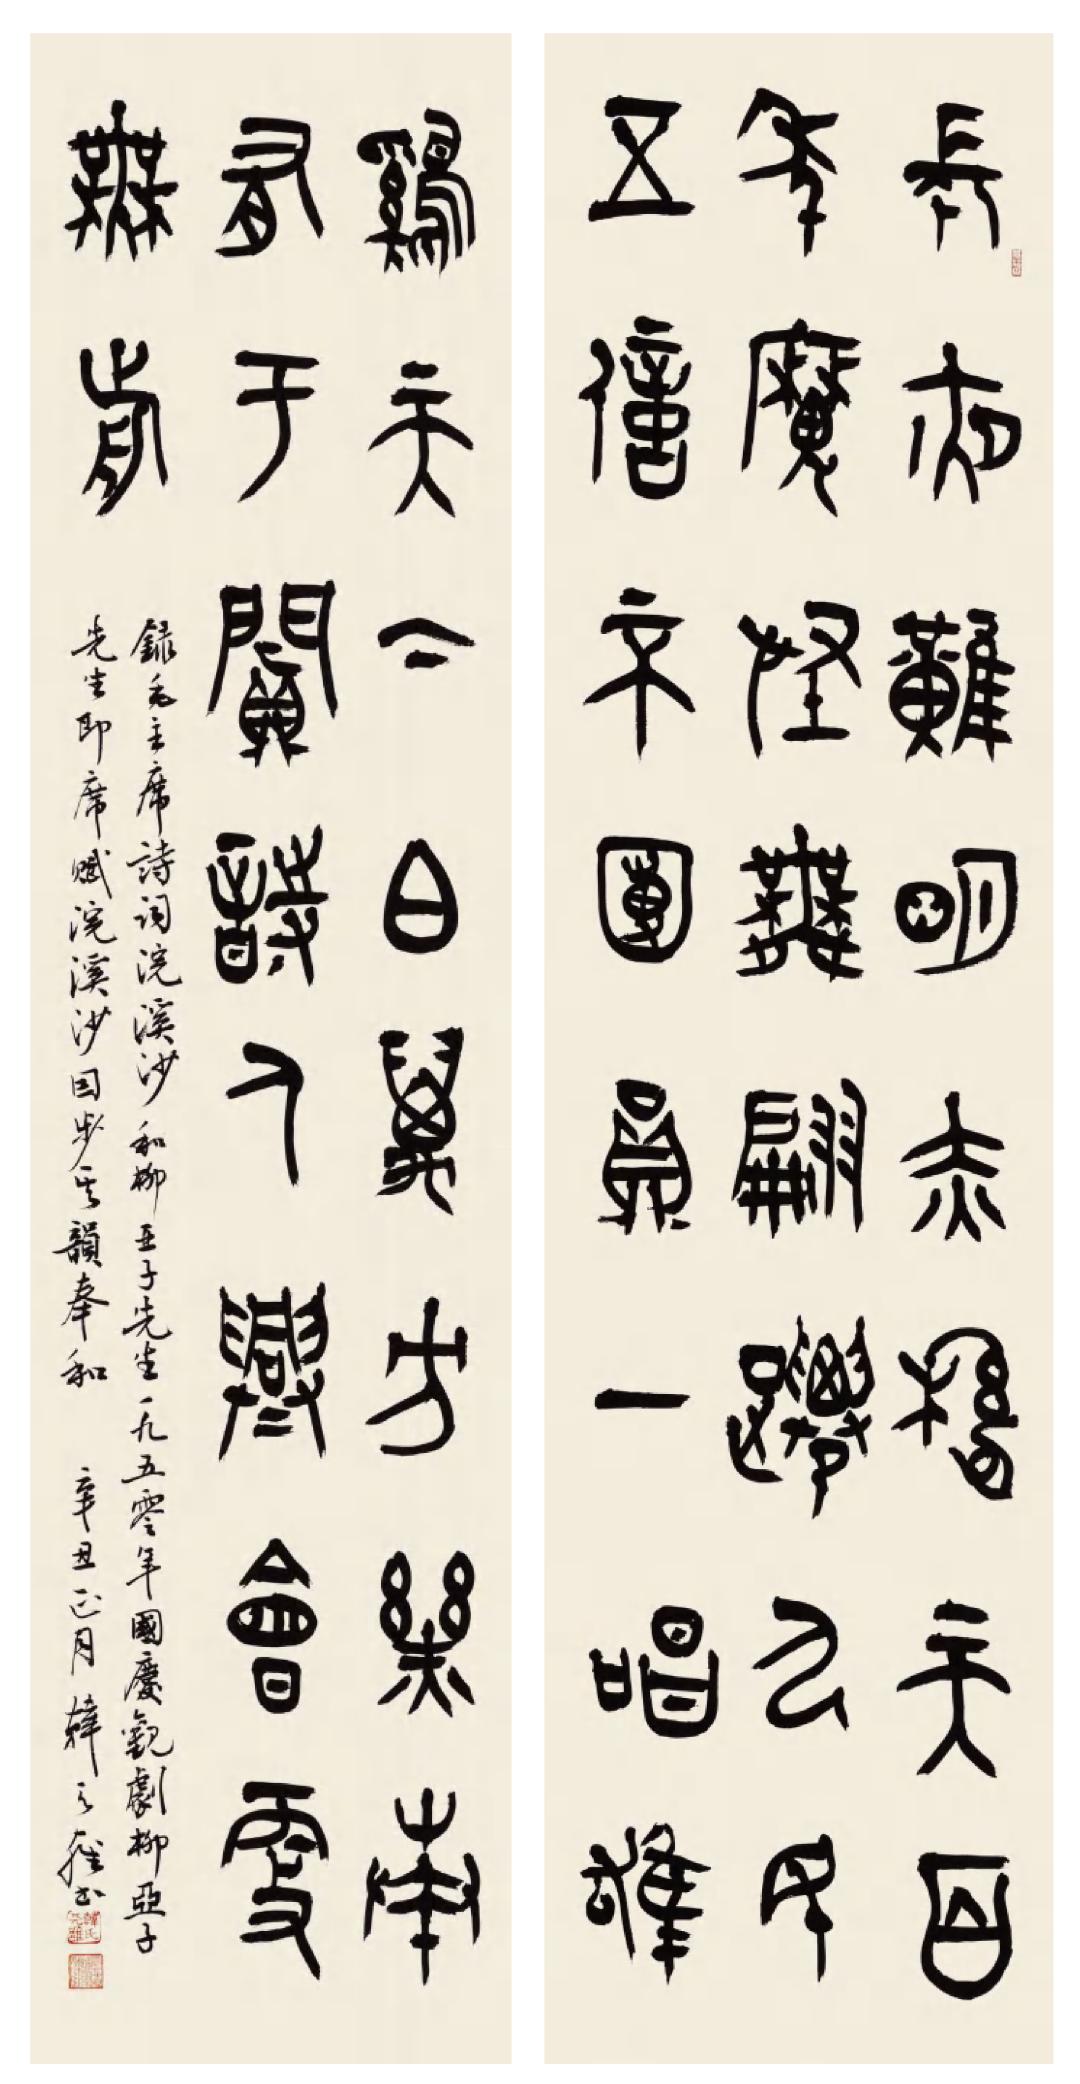 長夜難明赤縣天百
年魔怪舞翩躚人民
五億不團員一唱雄
鷄天下白萬方樂奏
有于闐詩人興會更
無前
錄毛主席詩詞浣溪沙和柳亞子先生一九五零年國慶觀劇柳亞子
先生即席賦浣溪沙因步其韻奉和 辛丑正月韓天雍書